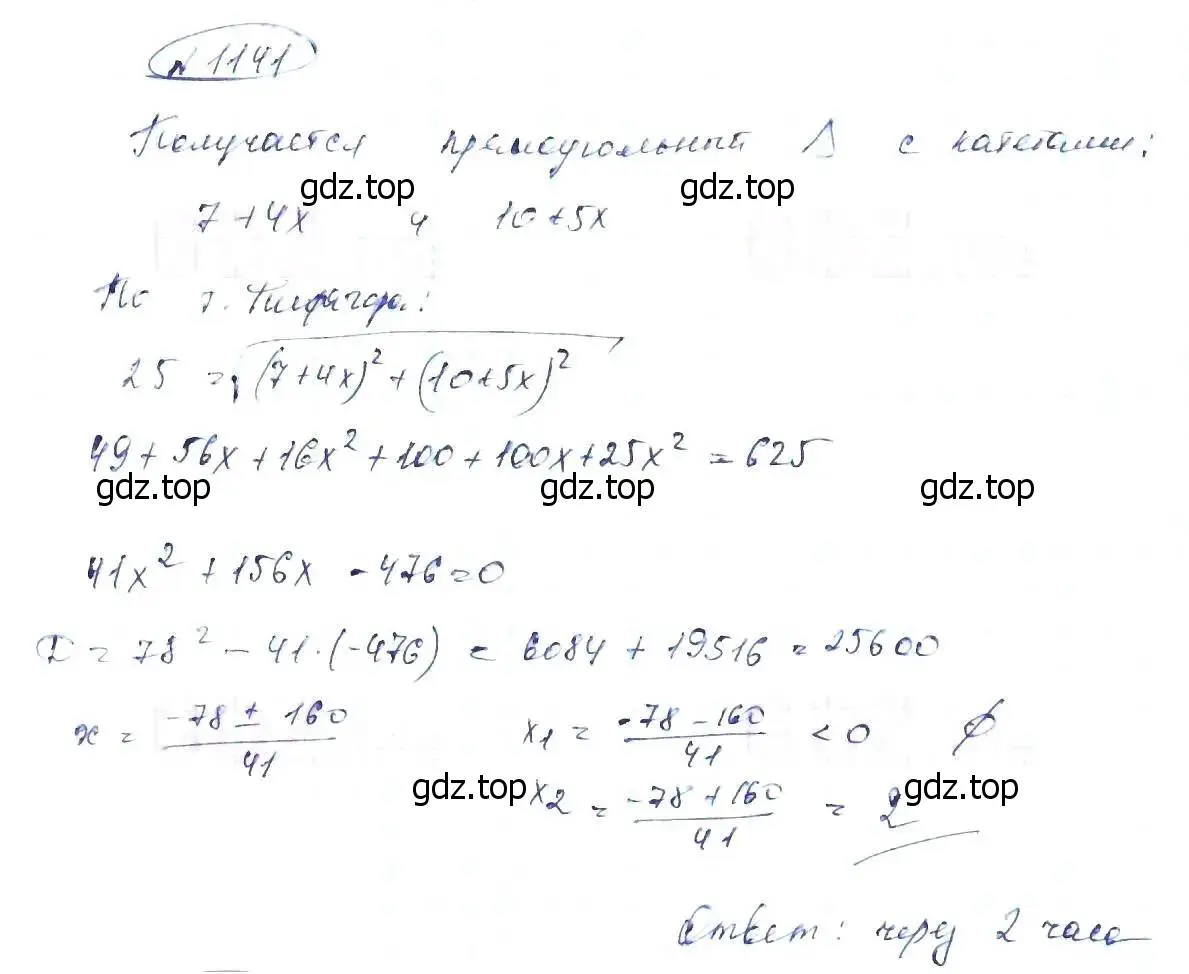 № 1141
Получается прямоугольный Δ с катетами:
gdz.top gdz.top
7+4x и 10+5x
По т. Пифагора:
25 = √(7+4x)² + (10+5x)²
49 + 56x + 16x² + 100 + 100x + 25x² = 625
gdz.top gdz.top gdz.top
41x² + 156x - 476 = 0
D = 78² - 41·(-476) = 6084 + 19516 = 25600
x = (-78 ± 160)/41 x₁ = (-78 - 160)/41 < 0 ∅
gdz.top x₂ = (-78 + 160)/41 = 2 gdz.top
Ответ: через 2 часа